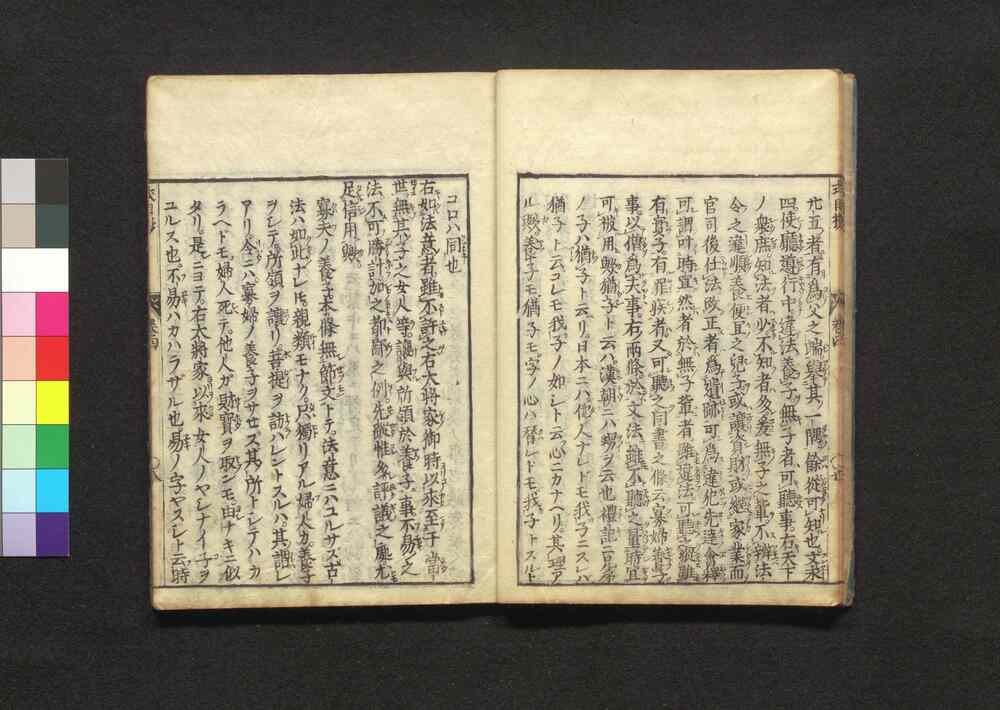 允五者有爲父之端與其一隅餘從可知也文永
四使廳遵行中違法養子無子者可聽事右天下
ノ衆庶知法者少不知者多差無子之輩不辨法
令之違順養便宜之兒子或讓資財或繼家業而
官司後仕法改正者爲遺師可爲違犯先達會釋
可謂叶時宜然者於無子輩者雖違法可聽之縱雖
有實子有罪疾者又可聽之同書之條云寡婦養子
事以僧爲夫事右兩條於文法雖不聽之量時宜
可被用歟猶子ト云ハ漢朝ニハ甥ヲ云也禮記曰
ノ子ハ猶子ト云リ日本ニハ他人ナレトモ我ヲニスハ
猶子ト云コレモ我子ノ如シト云心ニカナヘリ其理ア
ル歟養子モ猶子モ字ノ心ハ替レトモ我子トスルト
コロハ同也
右如法意者雖不許之右大將家御時以來至于當
世無其子之女人等讓與所領於養子事不易之
法不可勝計加之都鄙之例先蹤惟多評議之處尤
足信用歟
寡夫ノ養子末條無節文トテ法意ニハユルサス古
法ハ如此ナレトモ親類モナク只獨リアル婦人カ養子
ヲシテ所領ヲ讓リ菩提ヲ訪ハレントスルハ其謂レ
アリ今ニハ寡婦ノ養子ヲサセス其所トシテハカ
ラヘトモ婦人死テ他人カ財寶ヲ取ンモ由ナキニ似
タリ是ニヨテ右大將家以來女人ノヤシナイ子ヲ
ユルス也不易ハカハラサル也易ノ字ヤスシト云時